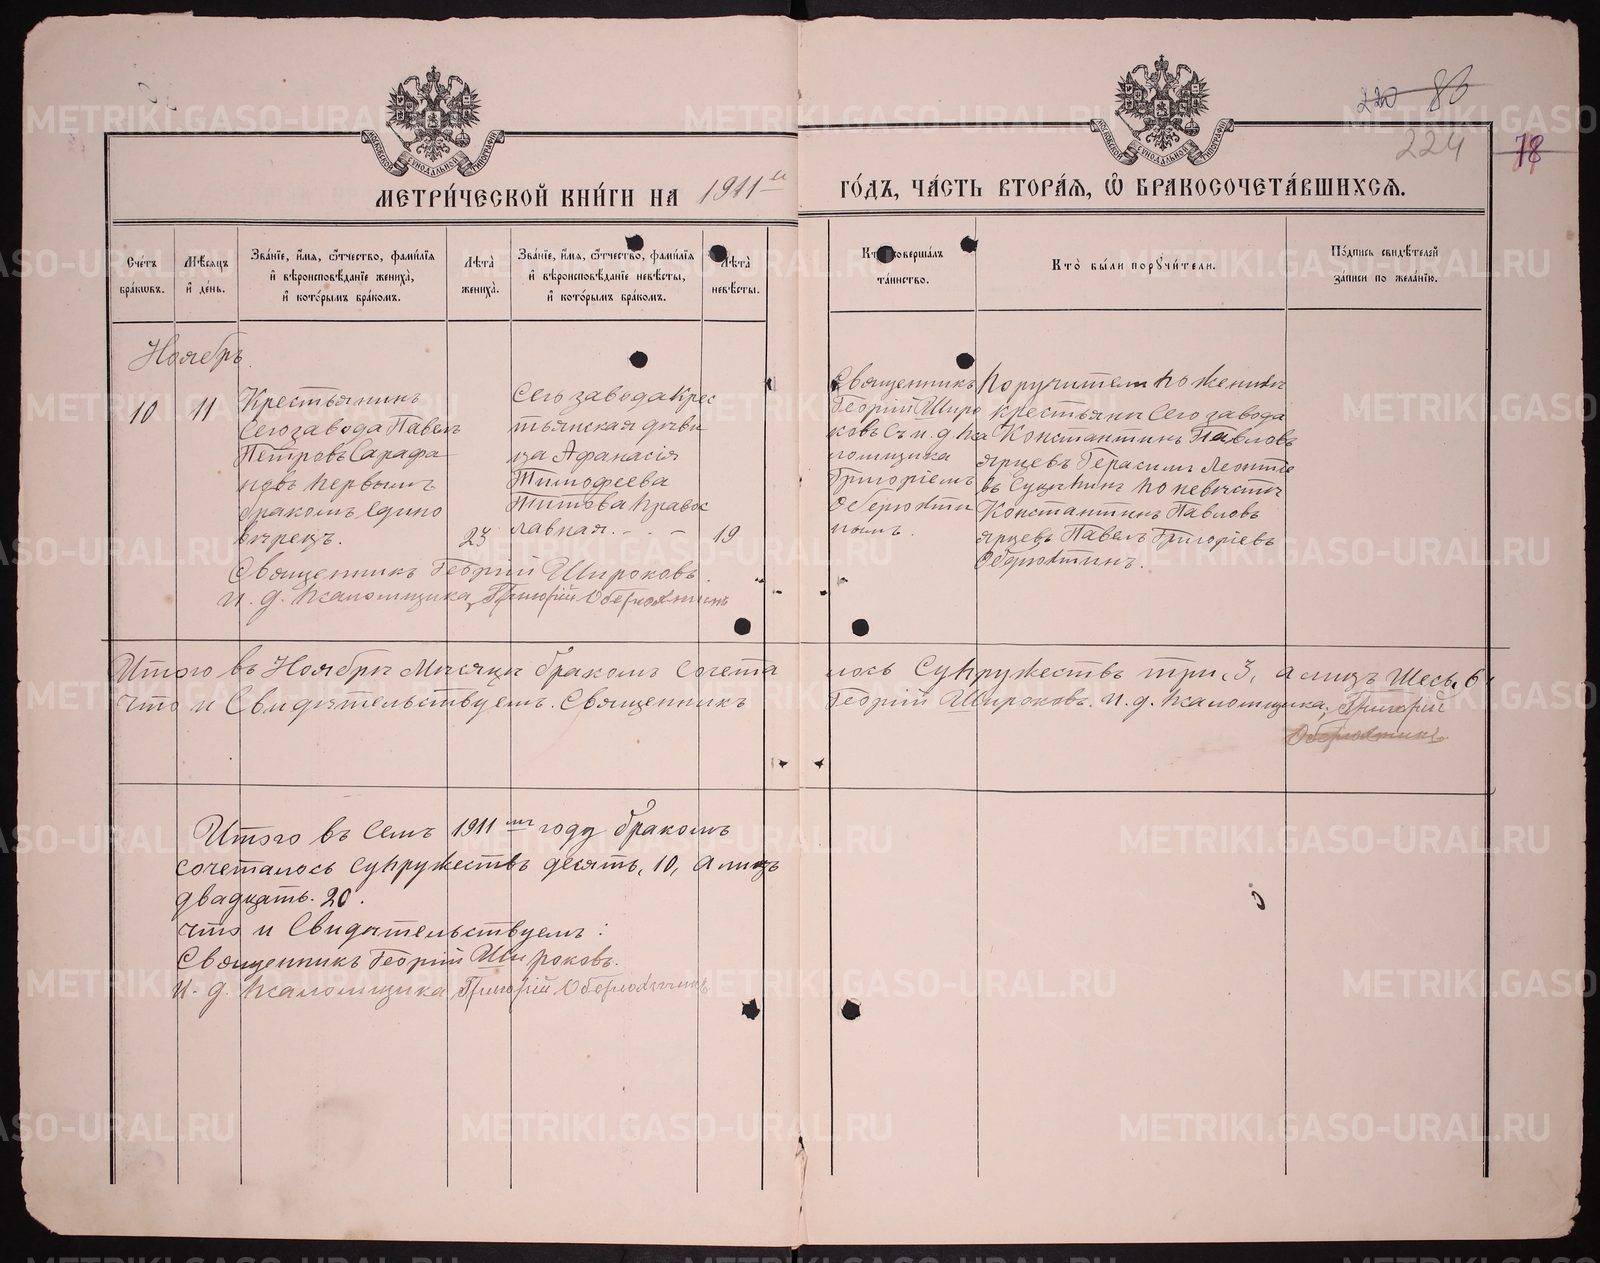 220 86
224
78
МЕТРИ́ЧЕСКОЙ КНИ́ГИ НА 1911 й ГО́ДЪ, ЧА́СТЬ ВТОРА́Я, Ѿ БРАКОСОЧЕТА́ВШИХСЯ.
Сче́тъ бра́ковъ.
Мѣ́сяцъ и де́нь.
Зва́нїе, и́мя, ѻ́тчество, фами́лїя и҆ вѣроисповѣ́данїе жениха̀, и҆ кото́рымъ бра́комъ.
Лѣта̀ жениха̀.
Зва́нїе, и́мя, ѻ́тчество, фами́лїя и҆ вѣроисповѣ́данїе невѣ́сты, и҆ кото́рымъ бра́комъ.
Лѣта̀ невѣ́сты.
Кто̀ соверша́лъ та́инство.
Кто̀ бы́ли порꙋчи́тели.
По́дпись свидѣ́телей за́писи по жела́нїю.
Ноябрь.
10
11
Крестьянинъ
сего завода Павелъ
Петровъ Сарафа
новъ первымъ
бракомъ едино
вѣрецъ.
23
Сего завода крес
тьянская дѣви
ца Афанасія
Тимофеева
Титова правос
лавная. - . -
19
Священникъ
Георгій Широ
ковъ съ и. д. пса
ломщика
Григоріемъ
Оберюхти
нымъ.
Поручители по женихѣ
крестьяни сего завода
Константинъ Павловъ
Ярцевъ Герасимъ Леонтье
въ по невѣстѣ
Константинъ Павловъ
Ярцевъ Павелъ Григорьевъ
Оберюхтинъ.
Священникъ Георгій Широковъ.
и. д. псаломщика, Григорій Оберюхтинъ
Итого въ Ноябрѣ мѣсяцѣ бракомъ сочета лось супружествъ три, 3, а лицъ шесь, 6.
что и Свидѣтельствуемъ. Священникъ Георгій Широковъ. и. д. псаломщика, Григорій
Оберюхтинъ.
Итого въ семъ 1911 мъ году бракомъ
сочеталось супружествъ десять, 10, а лицъ
двадцать. 20.
что и Свидѣтельствуемъ:
Священникъ Георгій Широковъ.
и. д. псаломщика Григорій Оберюхтинъ
METRIKI.GASO-URAL.RU